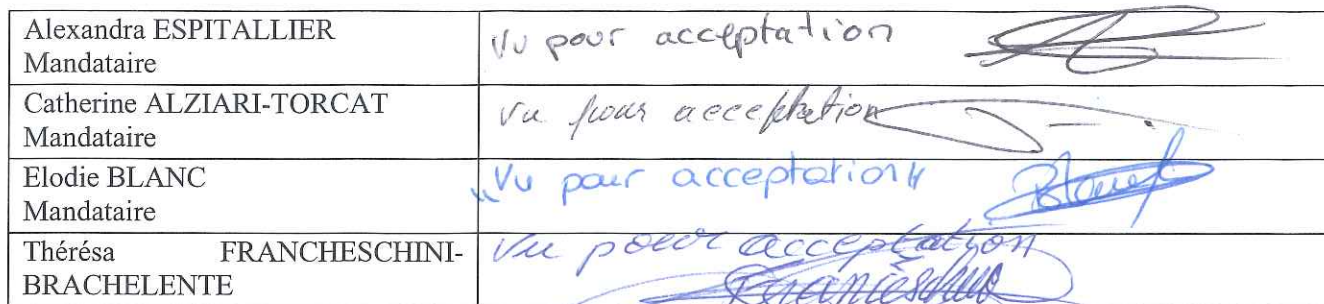 Alexandra ESPITALLIER
Mandataire
Vu pour acceptation
Catherine ALZIARI-TORCAT
Mandataire
Vu pour acceptation
Elodie BLANC
Mandataire
"Vu pour acceptation"
Blanc
Thérésa FRANCHESCHINI-
BRACHELENTE
Vu pour acceptation